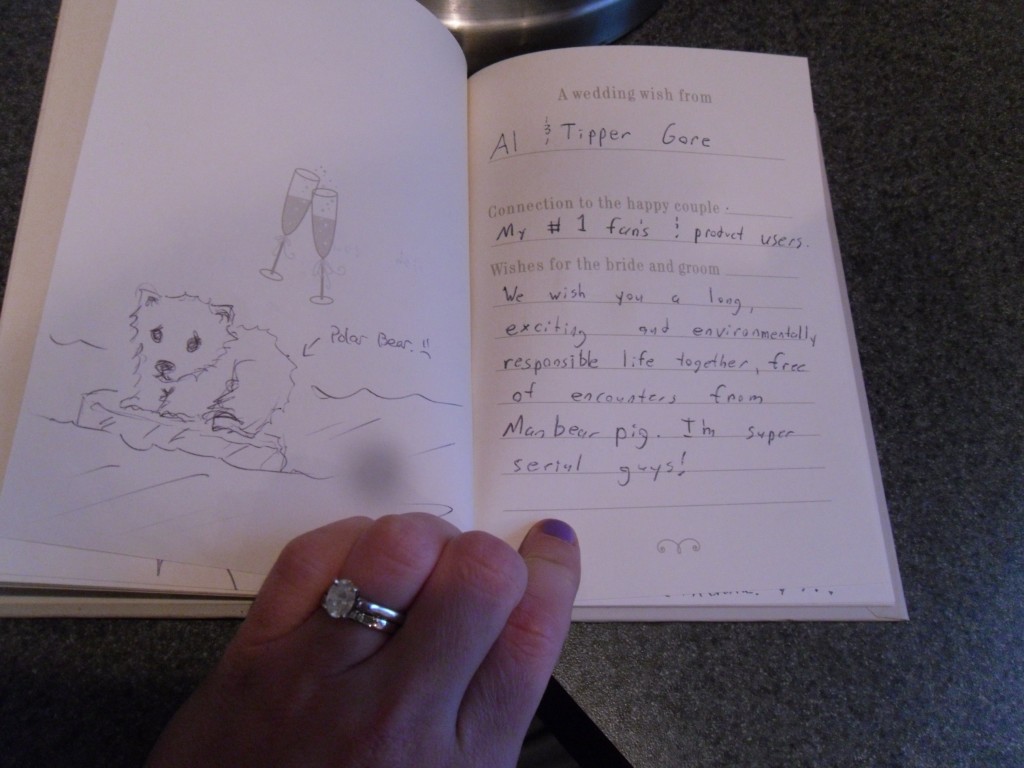 Polar Bear. :(
A wedding wish from
Al & Tipper Gore
Connection to the happy couple
My # 1 fan's & product users.
Wishes for the bride and groom
We wish you a long,
exciting and environmentally
responsible life together, free
of encounters from
Manbear pig. I'm super
serial guys!